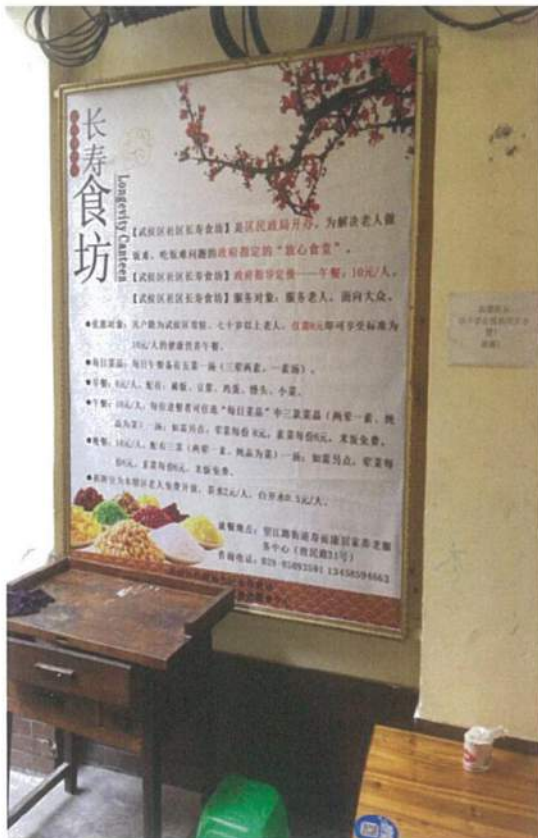 长寿食坊
Longevity Canteen
【武侯区社区长寿食坊】是区民政局开办,为解决老人做
饭难、吃饭难问题的政府指定的“放心食堂”。
【武侯区社区长寿食坊】政府指导定价——午餐:10元/人。
【武侯区社区长寿食坊】服务对象:服务老人,面向大众。
●优惠对象:凡户籍为武侯区常驻、七十岁以上老人,仅需8元即可享受标准为
10元/人的健康营养午餐。
●每日菜品:每日午餐备有五菜一汤(三荤两素、一素汤)。
●早餐:6元/人,配有:稀饭、豆浆、鸡蛋、馒头、小菜。
●午餐:10元/人,每位进餐者可任选“每日菜品”中三款菜品(两荤一素、
品为菜)一汤;如需另点,荤菜每份8元,素菜每份6元,米饭免费。
●晚餐:10元/人,配有三菜(两荤一素、炖品为菜)一汤;如需另点,荤菜每
份8元,素菜每份6元,米饭免费。
为本辖区老人免费开放,茶水2元/人,白开水0.5元/人。
就餐地点:望江路街道 居家养老服
务中心(致民路31号)
咨询电话:028-85093591 13458594663